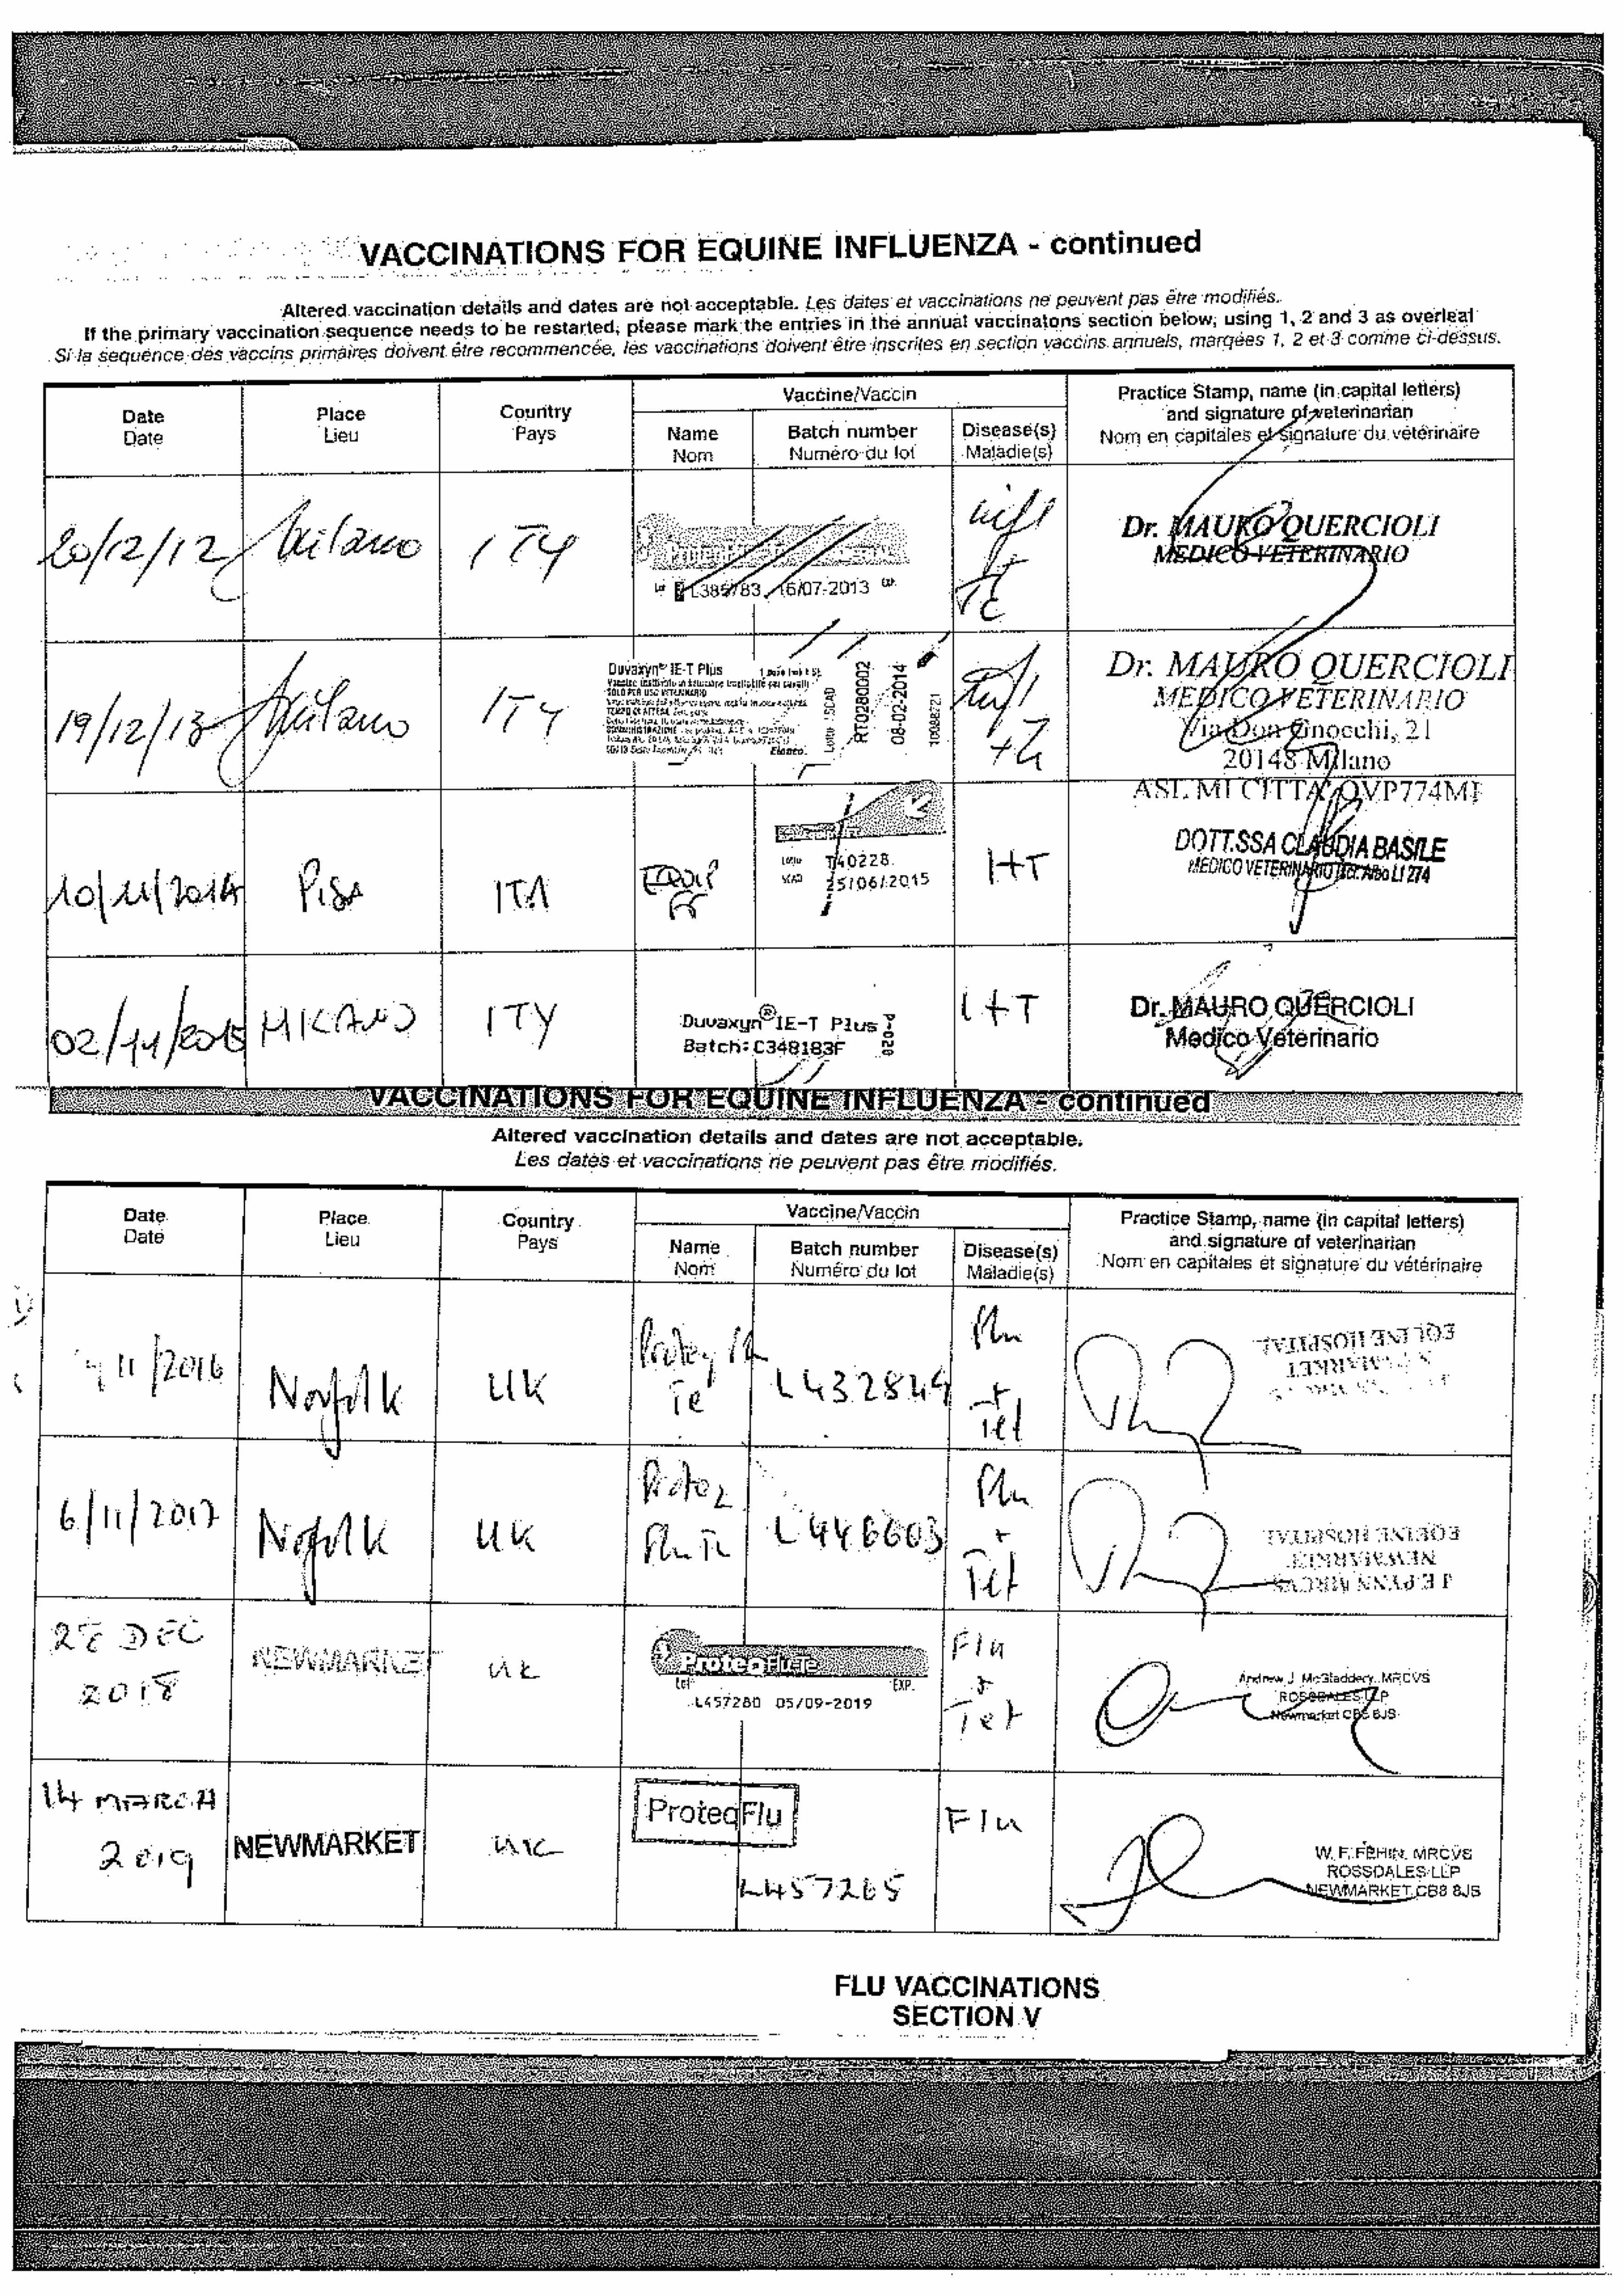 VACCINATIONS FOR EQUINE INFLUENZA - continued
Altered vaccination details and dates are not acceptable. Les dates et vaccinations ne peuvent pas être modifiés.
If the primary vaccination sequence needs to be restarted, please mark the entries in the annual vaccinatons section below, using 1, 2 and 3 as overleaf
Si la sequence des vaccins primaires doivent être recommencée, les vaccinations doivent être inscrites en section vaccins annuels, marqées 1, 2 et 3 comme ci-dessus.
Date
Date
Place
Lieu
Country
Pays
Vaccine/Vaccin
Name
Nom
Batch number
Numéro du lot
Disease(s)
Maladie(s)
Practice Stamp, name (in capital letters)
and signature of veterinarian
Nom en capitales et signature du vétérinaire
20/12/12
Milano
ITY
16/07-2013
Dr. MAURO QUERCIOLI
MEDICO VETERINARIO
19/12/13
Milano
ITY
Duvaxyn® IE-T Plus
SOLO PER USO VETERINARIO
Elanco
RT0280002
08-02-2014
Dr. MAURO QUERCIOLI
MEDICO VETERINARIO
Via Don Gnocchi, 21
20148 Milano
ASL MI CITTA' OVP774MI
10/11/2014
Pisa
ITA
T40228
25/06/2015
I+T
DOTT.SSA CLAUDIA BASILE
MEDICO VETERINARIO LI 274
02/11/2015
MILANO
ITY
Duvaxyn® IE-T Plus
Batch: C348183F
P-020
I+T
Dr. MAURO QUERCIOLI
Medico Veterinario
VACCINATIONS FOR EQUINE INFLUENZA - continued
Altered vaccination details and dates are not acceptable.
Les dates et vaccinations ne peuvent pas être modifiés.
Date
Date
Place
Lieu
Country
Pays
Vaccine/Vaccin
Name
Nom
Batch number
Numéro du lot
Disease(s)
Maladie(s)
Practice Stamp, name (in capital letters)
and signature of veterinarian
Nom en capitales et signature du vétérinaire
11/2016
Norfolk
UK
Te
L432849
Flu
+
Tet
EQUINE HOSPITAL
6/11/2017
Norfolk
UK
Flu Te
L446603
Flu
+
Tet
J E PYNN MRCVS
NEWMARKET
EQUINE HOSPITAL
DEC
2018
NEWMARKET
UK
ProteqFlu-Te
Lot EXP.
L457280 05/09-2019
Flu
+
Tet
Andrew J. McGladdery MRCVS
ROSSDALES LLP
Newmarket CB8 8JS
14 MARCH
2019
NEWMARKET
UK
ProteqFlu
L457265
Flu
W. F. FEHIN MRCVS
ROSSDALES LLP
NEWMARKET CB8 8JS
FLU VACCINATIONS
SECTION V